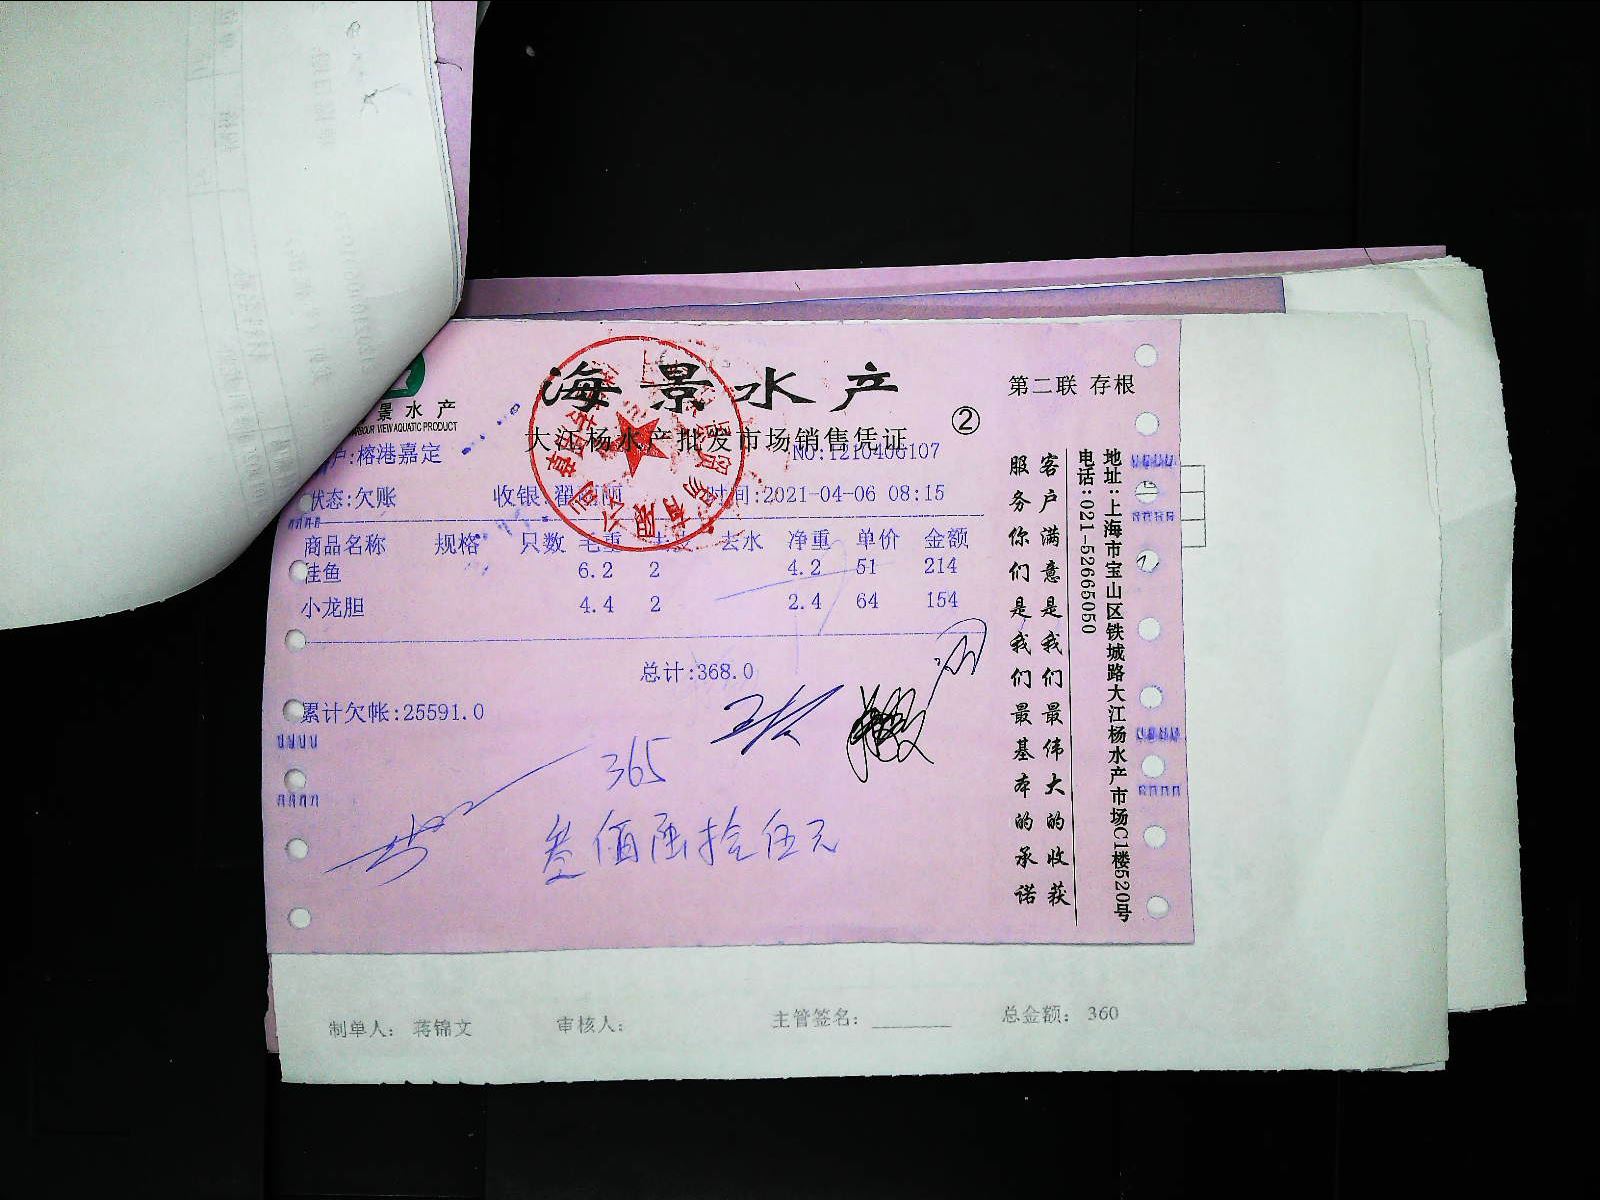 海景水产
第二联 存根
②
景水产
HARBOUR VIEW AQUATIC PRODUCT
大江杨水产批发市场销售凭证
NO:1210406107
户:榕港嘉定
状态:欠账 收银:翟 时间:2021-04-06 08:15
商品名称 规格 只数 毛重 去皮 去水 净重 单价 金额
桂鱼 6.2 2 4.2 51 214
小龙胆 4.4 2 2.4 64 154
总计:368.0
累计欠帐:25591.0
365
叁佰陆拾伍元
客户满意是我们最伟大的收获
服务你们是我们最基本的承诺
地址:上海市宝山区铁城路大江杨水产市场C1楼520号
电话:021-52665050
制单人: 蒋锦文 审核人: 主管签名: 总金额: 360